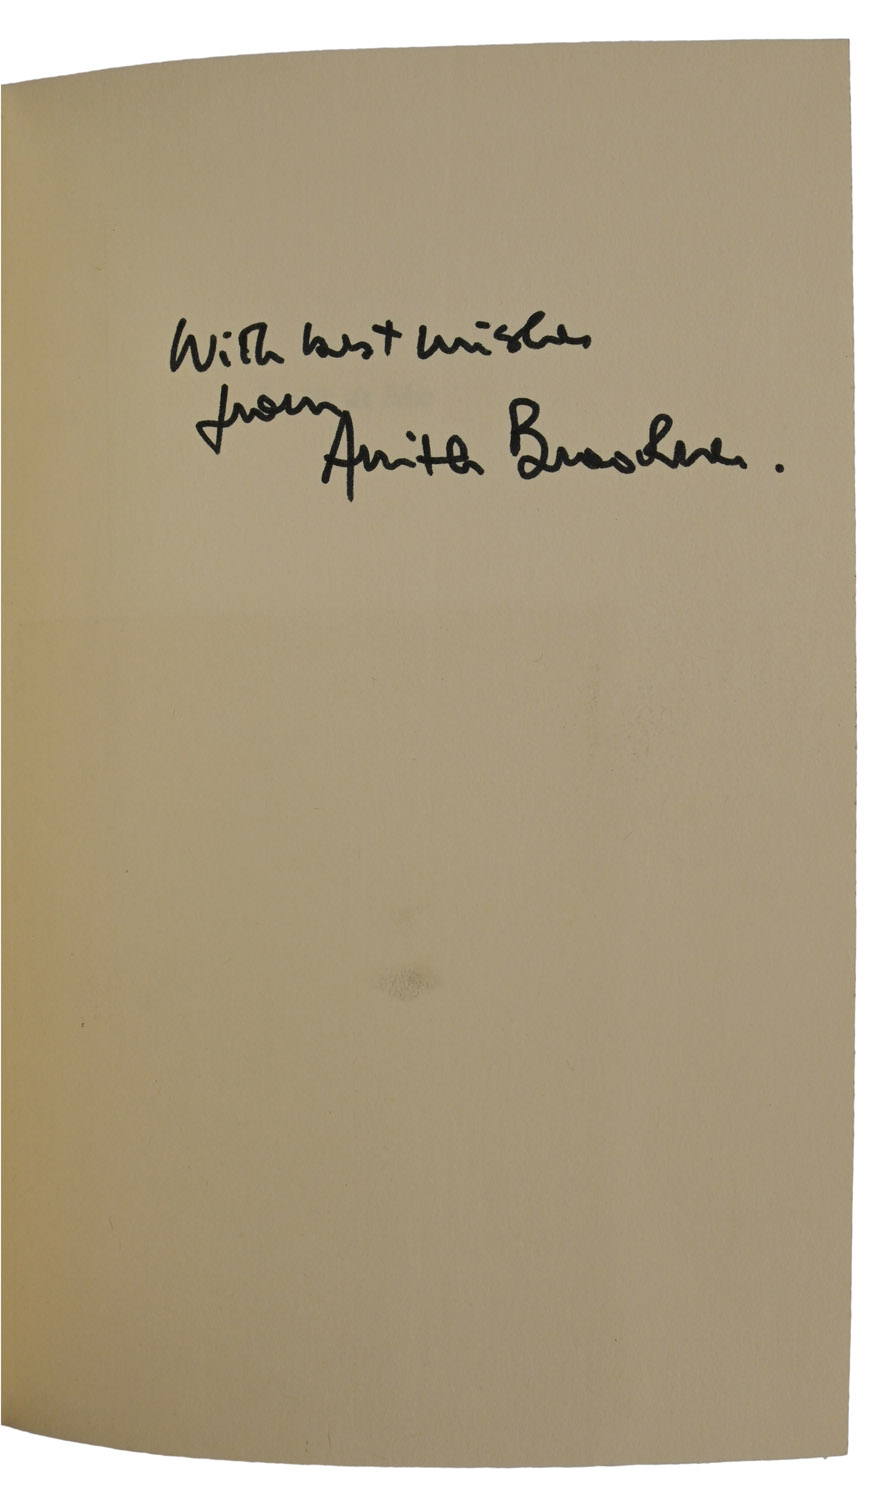 With best wishes
from
Anita Brookner.